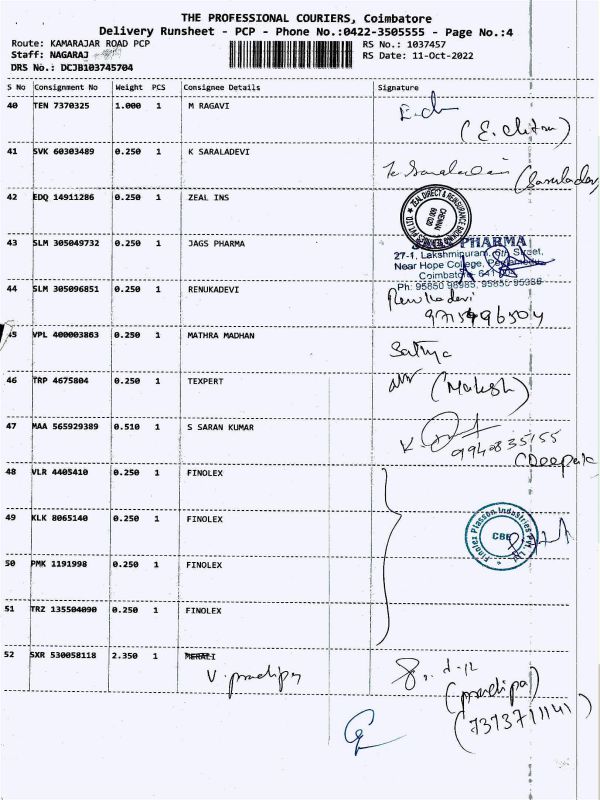 THE PROFESSIONAL COURIERS, Coimbatore
Delivery Runsheet - PCP - Phone No.:0422-3505555 - Page No.:4
Route: KAMARAJAR ROAD PCP RS No.: 1037457
Staff: NAGARAJ RS Date: 11-Oct-2022
DRS No.: DCJB103745704
S No Consignment No Weight PCS Consignee Details Signature
40 TEN 7370325 1.000 1 M RAGAVI
(E. Chitra)
41 SVK 60303489 0.250 1 K SARALADEVI
42 EDQ 14911286 0.250 1 ZEAL INS
ZEAL DIRECT & REINSURANCE BROKING
CHENNAI
43 SLM 305049732 0.250 1 JAGS PHARMA
PHARMA
27-1, Lakshmipuram, 6th Street,
Near Hope College,
Coimbatore
Ph: 95850 95985, 95850 95986
44 SLM 305096851 0.250 1 RENUKADEVI
Renukadevi
45 VPL 400003863 0.250 1 MATHRA MADHAN
Sathya
46 TRP 4675804 0.250 1 TEXPERT
(Mahesh)
47 MAA 565929389 0.510 1 S SARAN KUMAR
9940835155
(Deepak
48 VLR 4405410 0.250 1 FINOLEX
49 KLK 8065140 0.250 1 FINOLEX
Finolex Plasson Industries Pvt. Ltd
CBE
50 PMK 1191998 0.250 1 FINOLEX
51 TRZ 135504090 0.250 1 FINOLEX
52 SXR 530058118 2.350 1 MERALI
V. pradipa
(pradipa)
(7373711141)